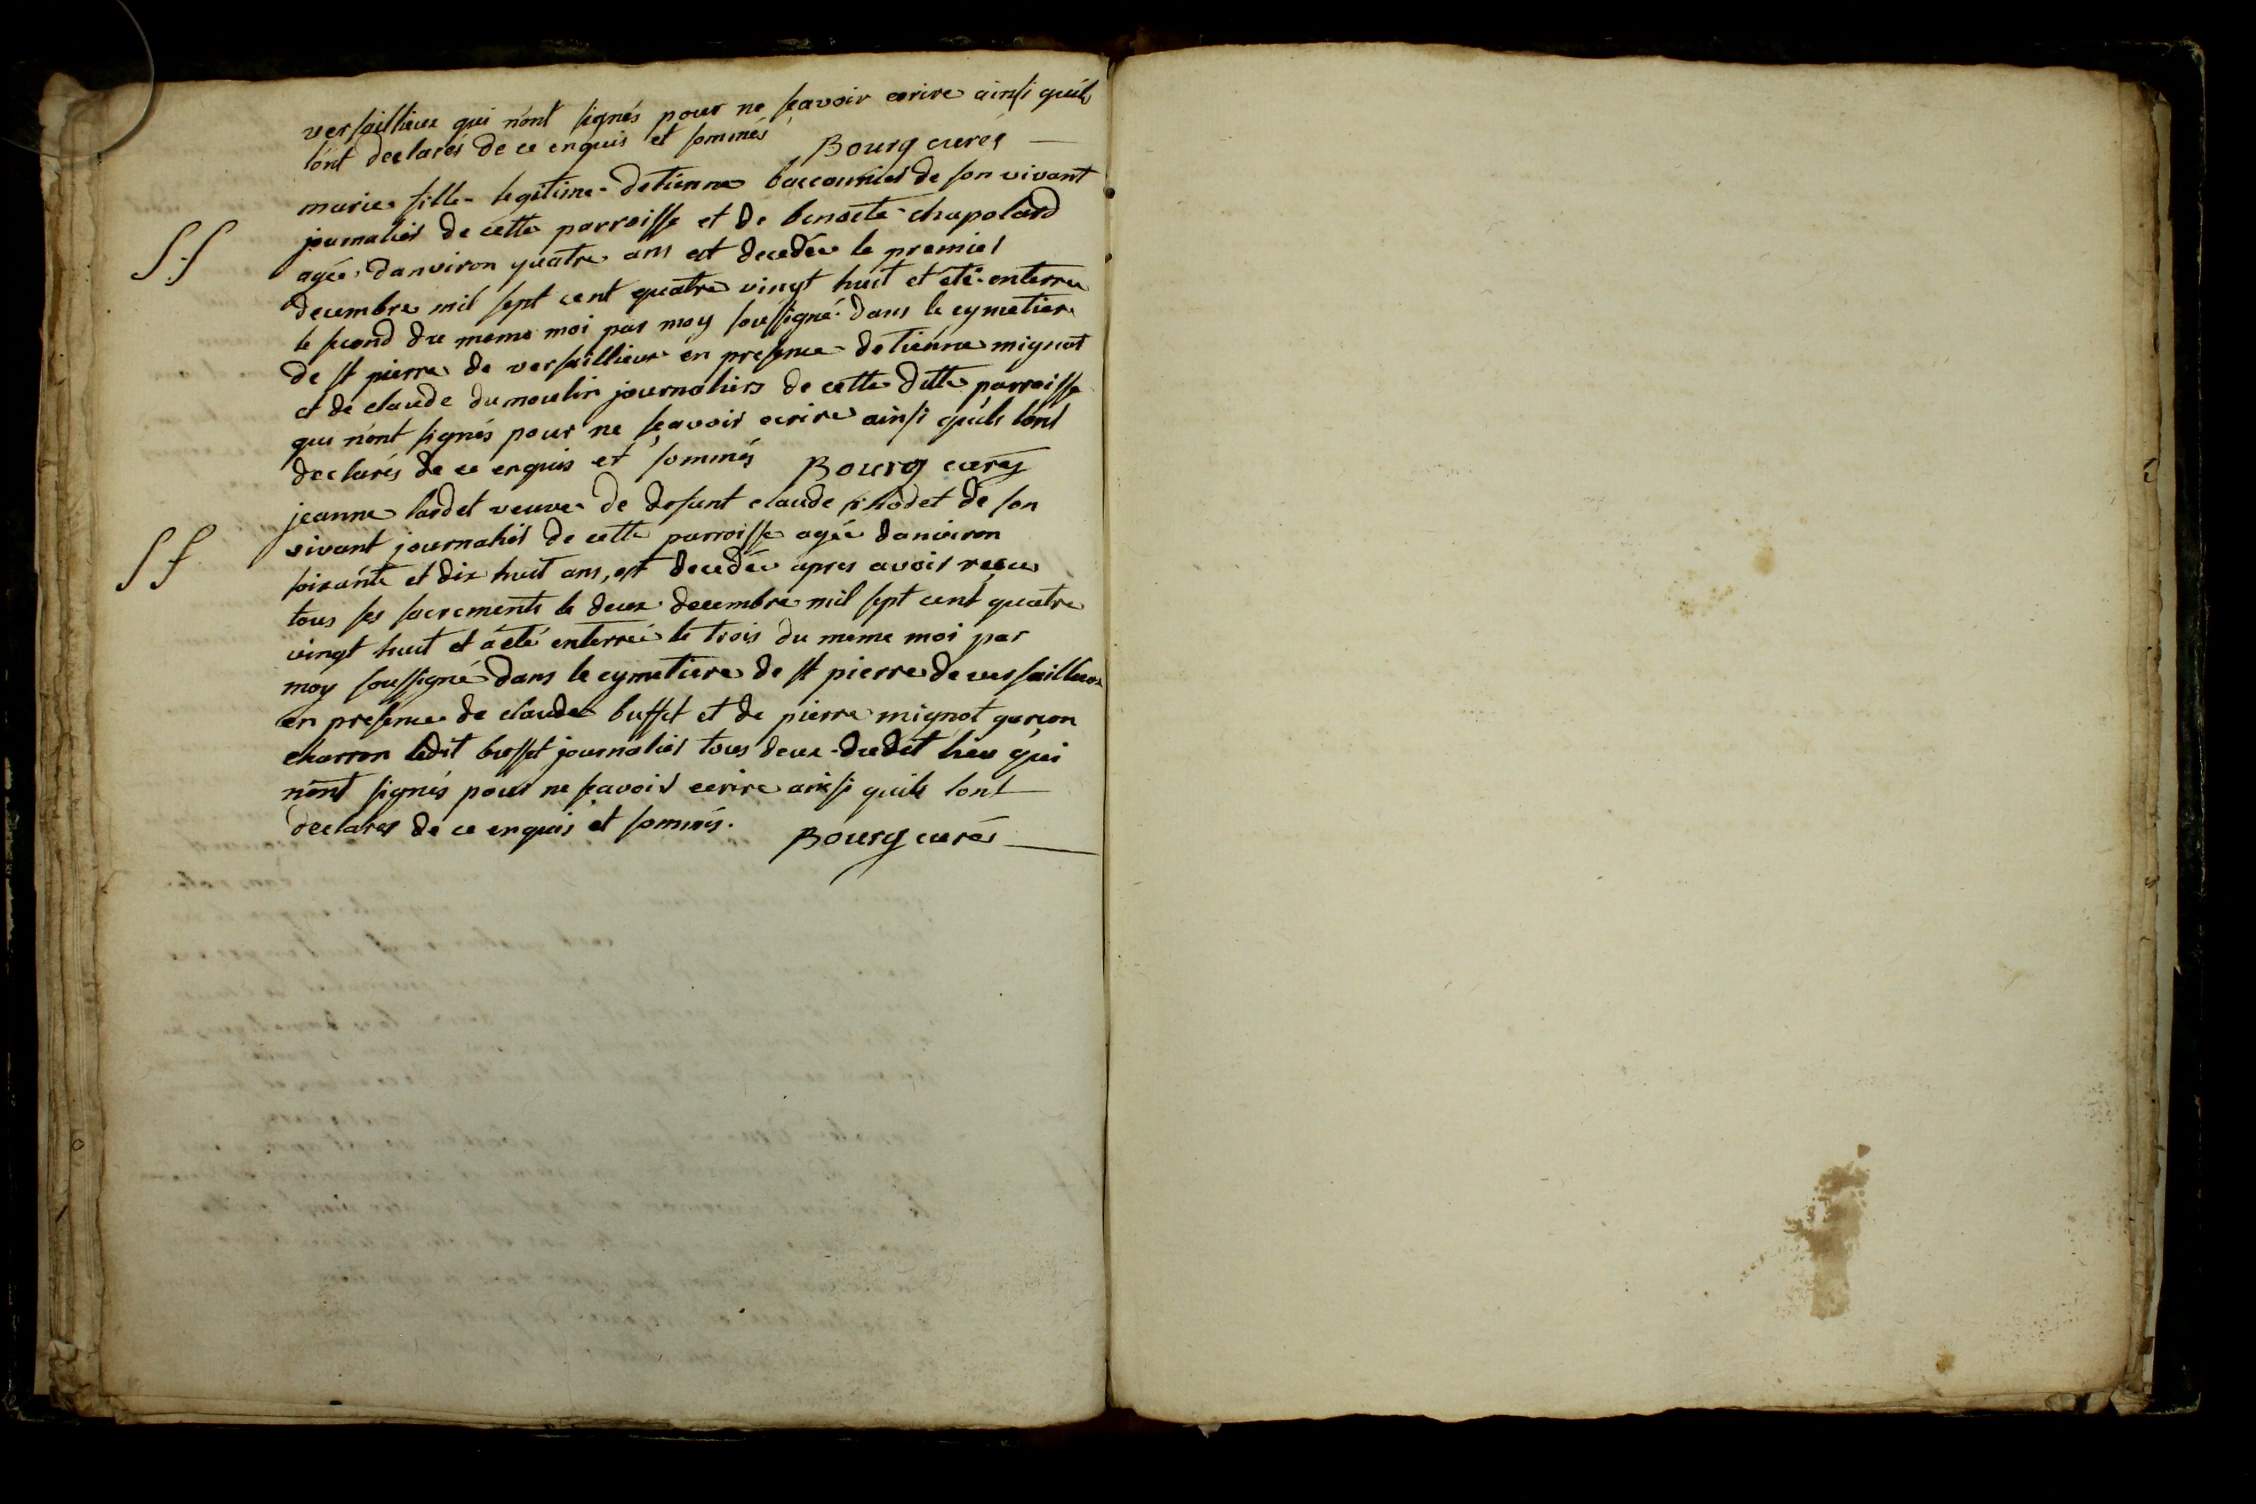 versaillieux qui n'ont signés pour ne sçavoir ecrire ainsi quils
lont declarés de ce enquis et sommés Bourg curés
marie fille legitime detienne baccounier de son vivant
journalier de cette parroisse et de benoite chapolard
SS agée danviron quatre ans est decedée le premier
decembre mil sept cent quatre vingt huit et été enterree
le second du meme moi par moy soussigné dans le cymetiere
de st pierre de versaillieux en presence detienne mignot
et de claude dumoulin journaliers de cette ditte parroisse
qui n'ont signés pour ne sçavoir ecrire ainsi quils lont
declarés de ce enquis et sommés Bourg curés
jeanne lardet veuve de defunt claude de son
SS vivant journalier de cette parroisse agée danviron
soixante et dix huit ans, est decedée apres avoir reçu
tous ses sacrements le deux decembre mil sept cent quatre
vingt huit et a été enterrée le trois du meme moi par
moy soussigné dans le cymetiere de st pierre de versaillieux
en presence de claude buffet et de pierre mignot garcon
charron ledit buffet journalier tous deux dudit lieu qui
n'ont signés pour ne sçavoir ecrire ainsi quils lont
declarés de ce enquis et sommés. Bourg curés